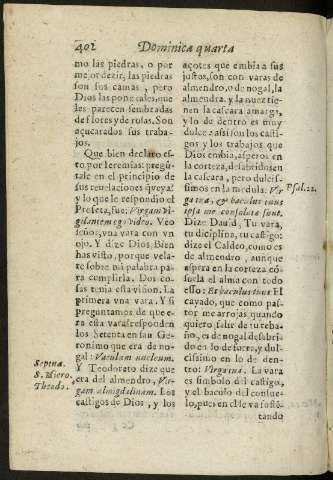 402 Dominica quarta
mo las piedras, o por
mejor dezir, las piedras
son sus camas, pero
Dios las pone tales, que
les parecen sembradas
de flores y de rosas. Son
açucarados sus traba-
jos.
Que bien declarò es-
to por Ieremias: pregũ-
tale en el principio de
sus reuelaciones q̃ veya?
y lo que le respondio el
Profeta, fue: Virgam vi-
gilantem ego video. Veo
señor, vna vara con vn
ojo. Y dize Dios, Bien
has visto, porque vela-
re sobre mi palabra pa-
ra cumplirla. Dos co-
sas tenia esta vision. La
primera vna vara. Y si
preguntamos de que e-
ra esta vara? responden
los Setenta en san Ge-
ronimo que era de no-
gal: Baculum nuceum.
Y Teodoreto dize que
era del almendro, Vir-
gam almigdalinam. Los
castigos de Dios, y los
Septua.
S. Hiero.
Theodo.
açotes que embia a sus
justos, son con varas de
almendro, o de nogal, la
almendra, y la nuez tie-
nen la cascara amarga,
y lo de dentro es muy
dulce: assi son los casti-
gos y los trabajos que
Dios embia, asperos en
la corteza, desabridos en
la cascara, pero dulcis-
simos en la medula. Vir-
ga tua, & baculus tuus
ipsa me consolata sunt.
Dize Dauid, Tu vara,
tu diciplina, tu castigo:
dize el Caldeo, como es
de almendro, aunque
aspera en la corteza cõ-
suela el alma con todo
esso: Et baculus tuus: El
cayado, que como pas-
tor me arrojas, quando
quiero salir de tu reba-
ño, es de nogal desabri-
do en lo de fuera, y dul-
cissimo en lo de den-
tro: Virga tua. La vara
es simbolo del castigo,
y el baculo del consue-
lo, pues en el se va sustẽ-
tando
Psal. 22.